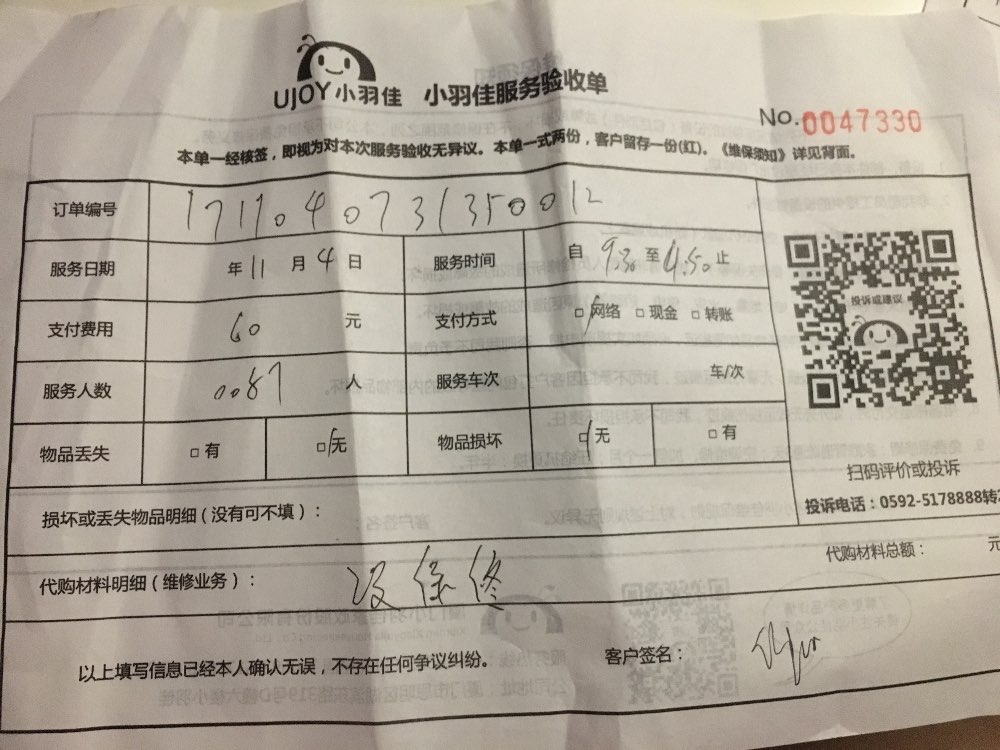 UJOY小羽佳 小羽佳服务验收单
No.0047330
本单一经核签，即视为对本次服务验收无异议。本单一式两份，客户留存一份(红)。《维保须知》详见背面。
订单编号
服务日期 年 11 月 4 日 服务时间 自 9:30 至 4:50 止
支付费用 60 元 支付方式 □ 网络 □ 现金 □ 转账
投诉或建议
服务人数 0087 人 服务车次 车/次
物品丢失 □ 有 □ 无 物品损坏 □ 无 □ 有
扫码评价或投诉
损坏或丢失物品明细（没有可不填）：
投诉电话：0592-5178888转
代购材料明细（维修业务）： 代购材料总额： 元
以上填写信息已经本人确认无误，不存在任何争议纠纷。 客户签名：